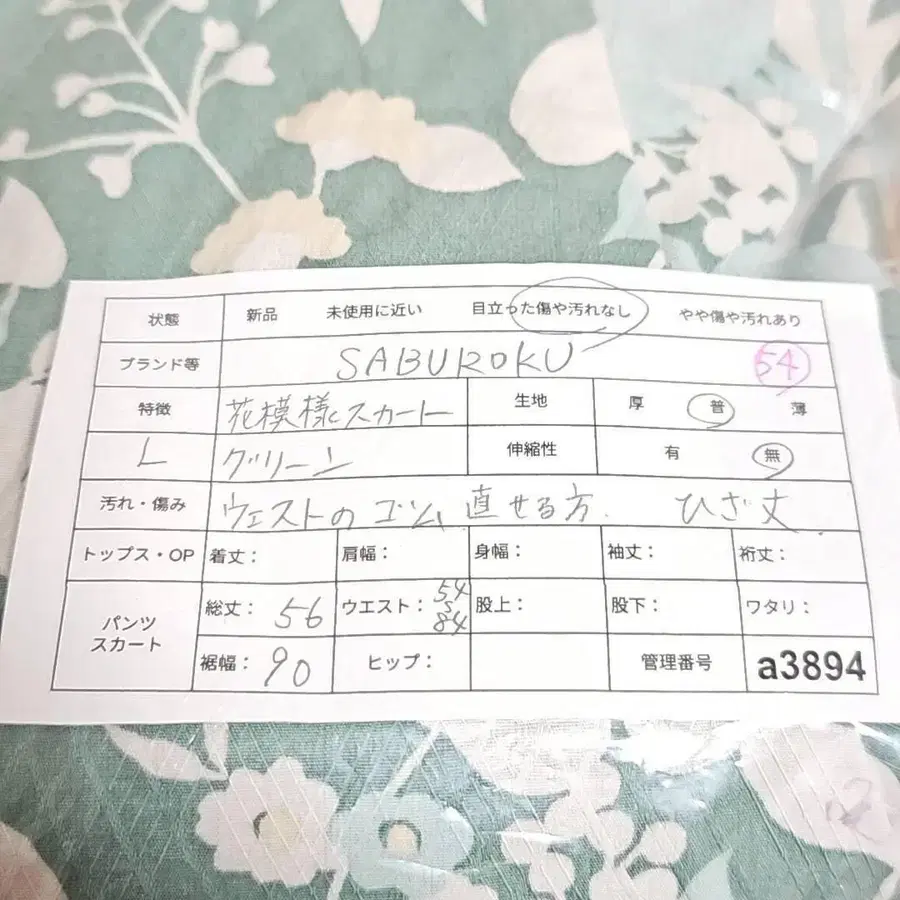 状態 新品 未使用に近い 目立った傷や汚れなし やや傷や汚れあり
ブランド等 SABUROKU 54
特徴 花模様スカート 生地 厚 普 薄
L グリーン 伸縮性 有 無
汚れ・傷み ウエストのゴム 直せる方. ひざ丈
トップス・OP 着丈: 肩幅: 身幅: 袖丈: 裄丈:
パンツ
スカート
総丈: 56 ウエスト: 54
84 股上: 股下: ワタリ:
裾幅: 90 ヒップ: 管理番号 a3894